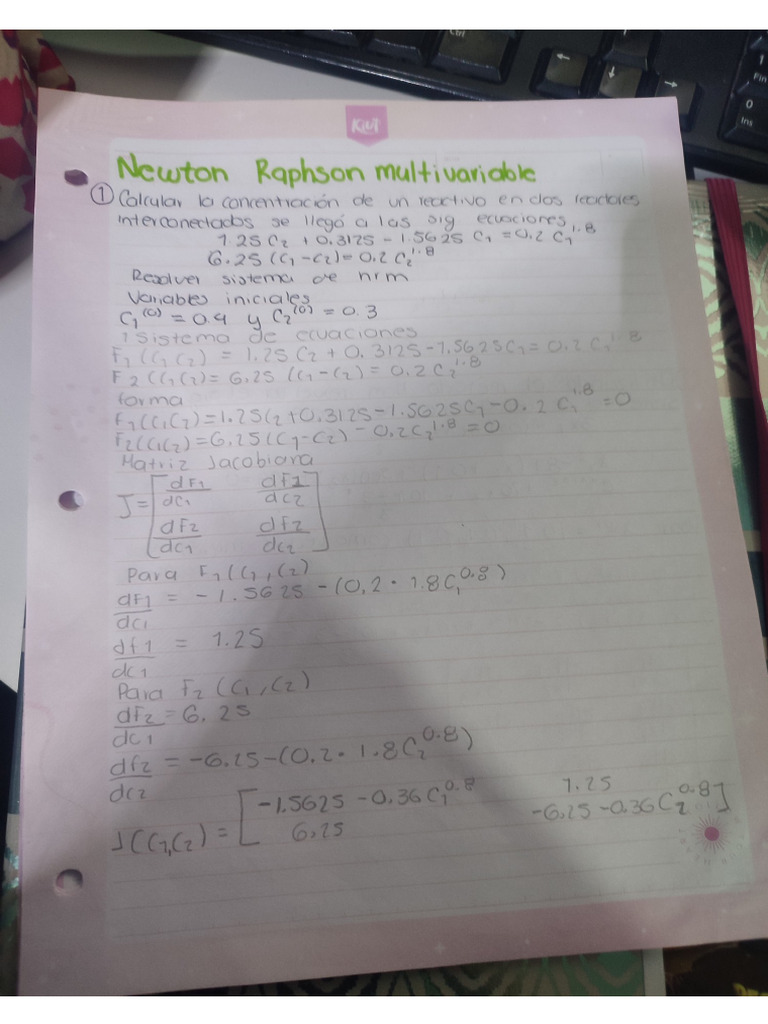 Kiut
Newton Raphson multivariable
① Calcular la concentración de un reactivo en dos reactores
interconectados se llegó a las sig ecuaciones
1.25 C2 + 0.3125 - 1.5625 C1 = 0.2 C1^1.8
6.25 (C1 - C2) = 0.2 C2^1.8
Resolver sistema de nrm
Variables iniciales
C1^(0) = 0.4 y C2^(0) = 0.3
1 Sistema de ecuaciones
F1 (C1 C2) = 1.25 C2 + 0.3125 - 1.5625 C1 = 0.2 C1^1.8
F2 (C1 C2) = 6.25 (C1 - C2) = 0.2 C2^1.8
forma
F1 (C1 C2) = 1.25 C2 + 0.3125 - 1.5625 C1 - 0.2 C1^1.8 = 0
F2 (C1 C2) = 6.25 (C1 - C2) - 0.2 C2^1.8 = 0
Matriz Jacobiana
J = [ dF1/dC1 dF1/dC2
dF2/dC1 dF2/dC2 ]
Para F1 (C1, C2)
dF1/dC1 = -1.5625 - (0.2 · 1.8 C1^0.8)
df1/dC1 = 1.25
Para F2 (C1, C2)
dF2/dC1 = 6.25
df2/dC2 = -6.25 - (0.2 · 1.8 C2^0.8)
J (C1, C2) = [ -1.5625 - 0.36 C1^0.8 1.25
6.25 -6.25 - 0.36 C2^0.8 ]
Ctrl
1
Fin
0
Ins